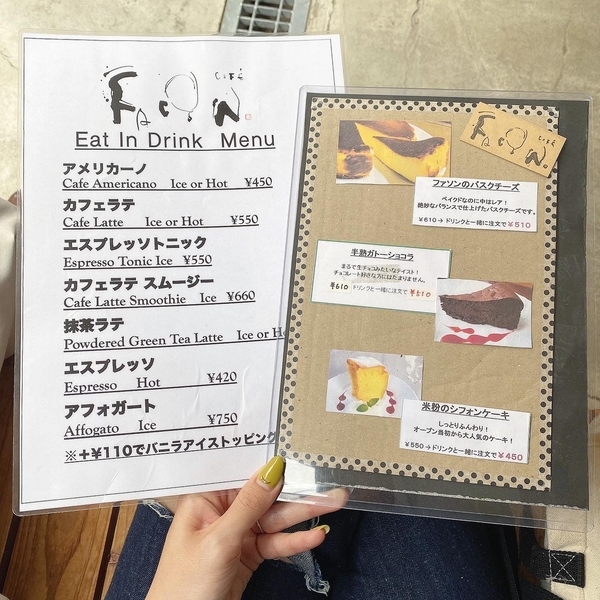 FAÇON CAFÉ
Eat In Drink Menu
アメリカーノ
Cafe Americano Ice or Hot ¥450
カフェラテ
Cafe Latte Ice or Hot ¥550
エスプレッソトニック
Espresso Tonic Ice ¥550
カフェラテ スムージー
Cafe Latte Smoothie Ice ¥660
抹茶ラテ
Powdered Green Tea Latte Ice or Ho
エスプレッソ
Espresso Hot ¥420
アフォガート
Affogato Ice ¥750
※+¥110でバニラアイストッピング
FAÇON CAFÉ
ファソンのバスクチーズ
ベイクドなのに中はレア！
絶妙なバランスで仕上げたバスクチーズです。
¥610→ドリンクと一緒に注文で¥510
半熟ガトーショコラ
まるで生チョコみたいなテイスト！
チョコレート好きな方にはたまりません。
¥610 → ドリンクと一緒に注文で ¥510
米粉のシフォンケーキ
しっとりふんわり！
オープン当初から大人気のケーキ！
¥550→ドリンクと一緒に注文で¥450